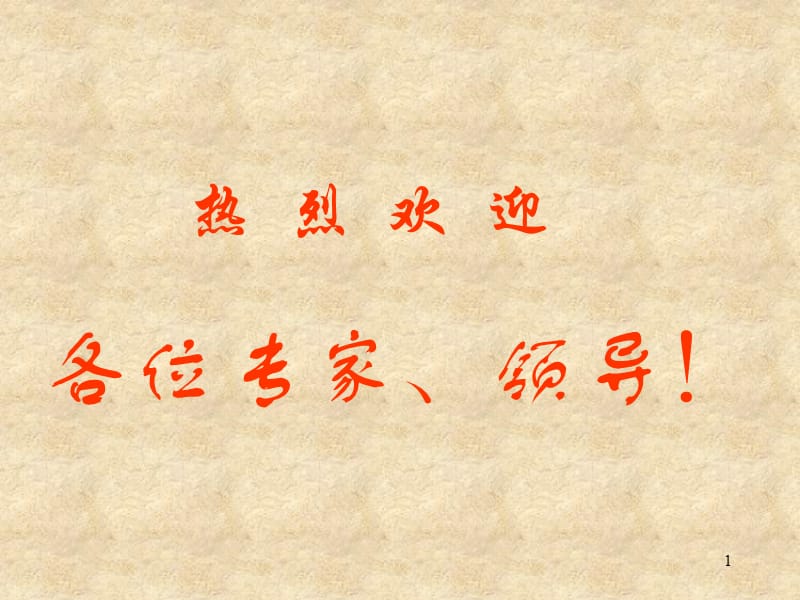 热 烈 欢 迎
各位专家、领导！
1